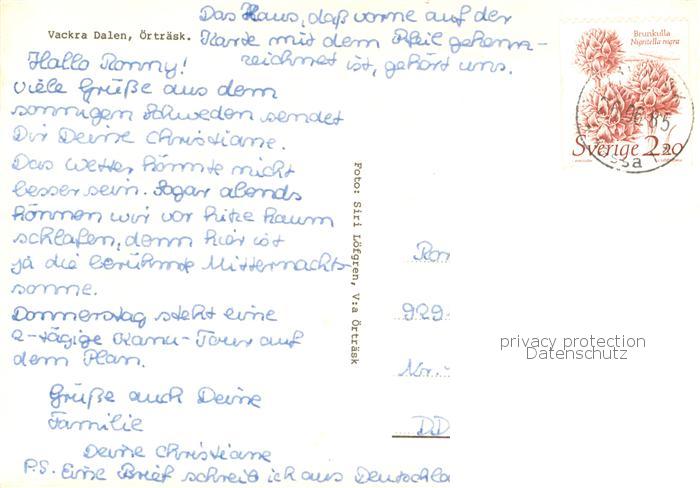 Das Haus, daß vorne auf der
Vackra Dalen, Örträsk. Karte mit dem Pfeil gekenn-
zeichnet ist, gehört uns.
Hallo Ronny!
viele Grüße aus dem
sonnigen Schweden sendet
Dir Deine Christiane.
Das Wetter könnte nicht
besser sein. Sogar abends
können wir vor hitze kaum
schlafen, denn hier ist
ja die berühmte Mitternachts-
sonne.
Donnerstag steht eine
2-tägige Kanu-Tour auf
dem Plan.
Grüße auch Deine
Familie
Deine Christiane
P.S. Eine Brief schreib ich aus Deutschla
Foto: Siri Löfgren, V:a Örträsk
Brunkulla
Nigritella nigra
Sverige 2.20
85
ssa
Ron
929
Nr.
DD
privacy protection
Datenschutz